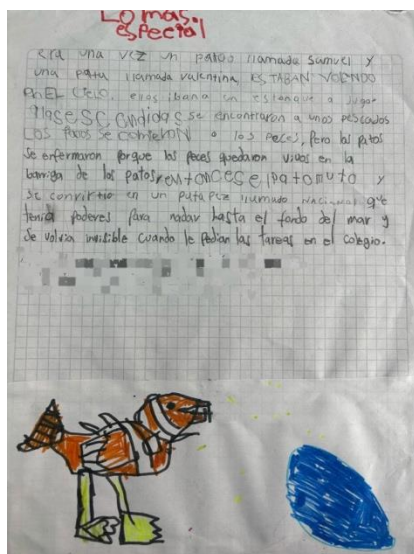 Lo mas
especial
era una vez un patoo llamada samuel y
una pata llamada valentina, ES TABAN VOLANDO
en EL cielo. eros iban a un estanque a jugar
alas escondidas se encontraron a unos pescados
Los patos se comieron a los peces, pero los patos
se enfermaron porque los peces quedaron vivos en la
barriga de los patos entonces el pato muto y
se convirtio en un pata pez llamado nacional que
tenia poderes para nadar hasta el fondo del mar y
se volvia invisible cuando le pedian las tareas en el colegio.